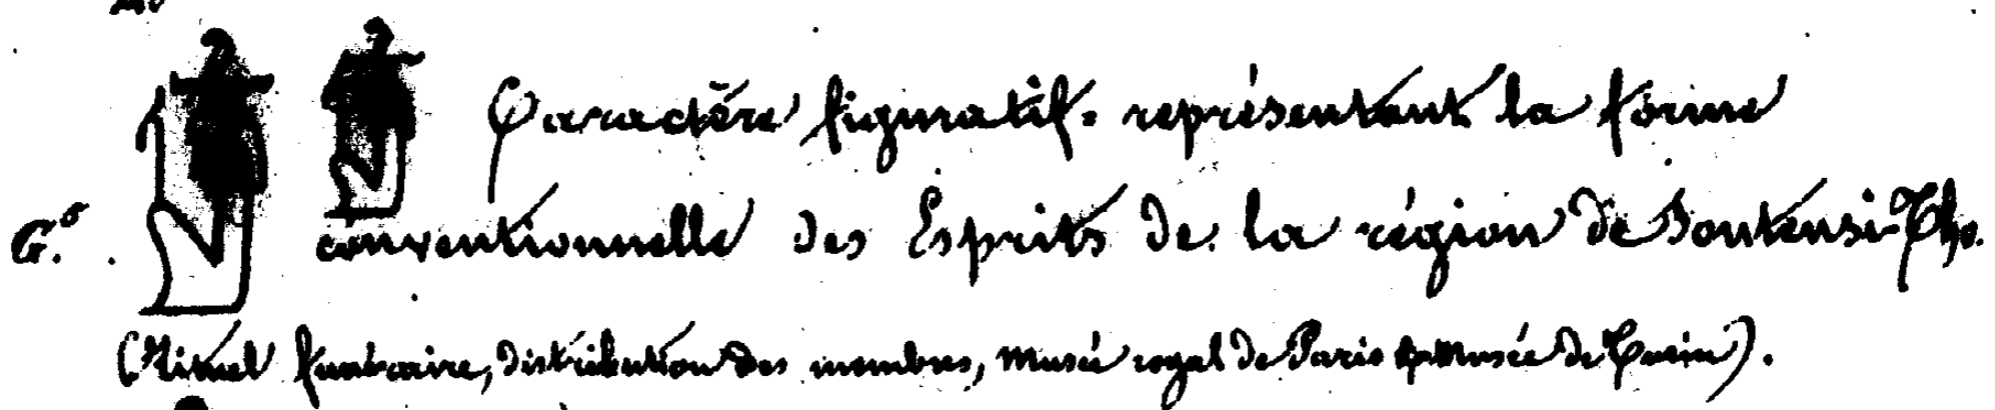 Caractère figuratif. représentant la forme
G.° conventionnelle des Esprits de la région de
(Rituel funéraire, distribution des membres, Musée royal de Paris & Musée de Turin).